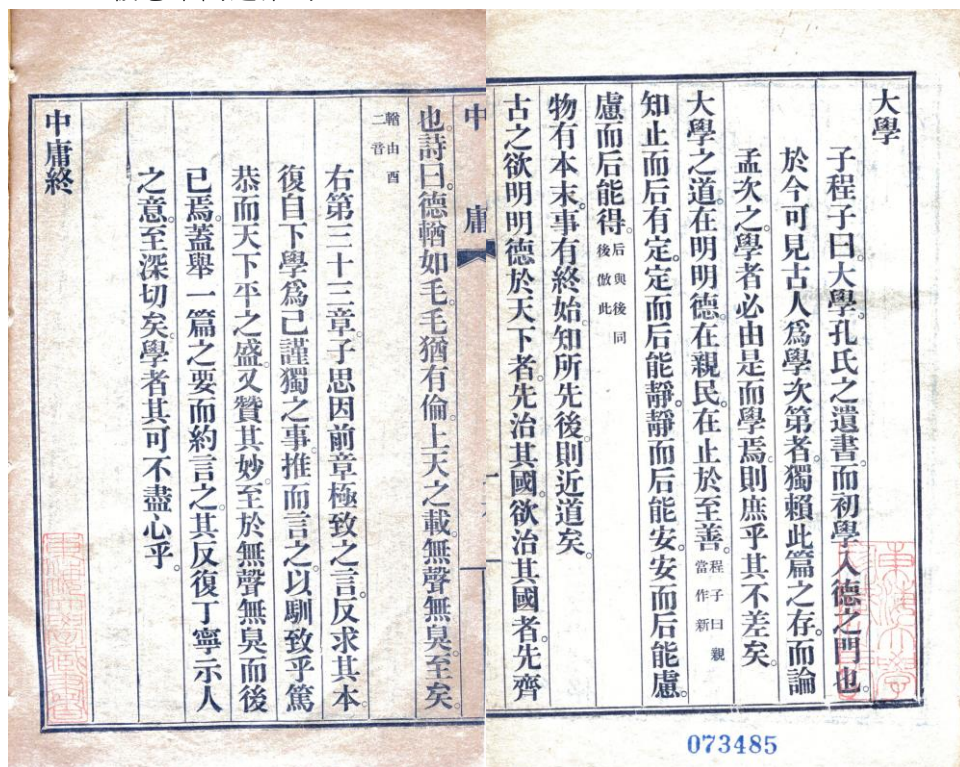 大學
子程子曰。大學。孔氏之遺書。而初學入德之門也。
於今可見古人爲學次第者。獨賴此篇之存。而論
孟次之。學者必由是而學焉。則庶乎其不差矣。
大學之道。在明明德。在親民。在止於至善。程子曰親當作新
知止而后有定。定而后能靜。靜而后能安。安而后能慮。
慮而后能得。后與後同後倣此
物有本末。事有終始。知所先後。則近道矣。
古之欲明明德於天下者。先治其國。欲治其國者。先齊
073485
中庸
也。詩曰。德輶如毛。毛猶有倫。上天之載。無聲無臭。至矣。
輶由酉二音
右第三十三章。子思因前章極致之言。反求其本。
復自下學爲己謹獨之事。推而言之。以馴致乎篤
恭而天下平之盛。又贊其妙。至於無聲無臭而後
已焉。蓋舉一篇之要而約言之。其反復丁寧示人
之意。至深切矣。學者其可不盡心乎。
中庸終